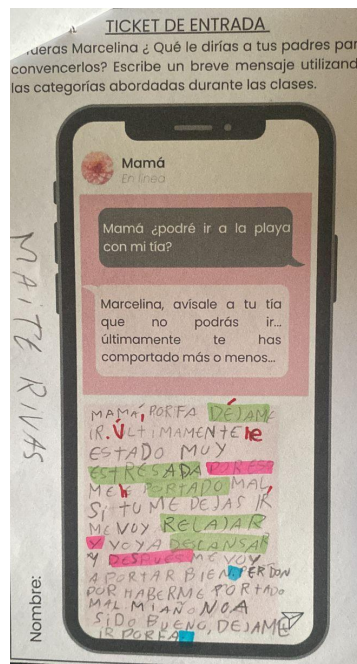 TICKET DE ENTRADA
fueras Marcelina ¿ Qué le dirías a tus padres par
convencerlos? Escribe un breve mensaje utilizand
las categorías abordadas durante las clases.
Mamá
En línea
Mamá ¿podré ir a la playa
con mi tía?
Marcelina, avísale a tu tía
que no podrás ir...
últimamente te has
comportado más o menos...
MAMÁ, PORFA DÉJAME
IR. ÚLTIMAMENTE he
ESTADO MUY
ESTRESADA POR ESO
ME h PORTADO MAL,
Si TU ME DEJAS IR
ME VOY RELAJAR
Y VOY A DESCANSAR
Y DESPUES ME VOY
A PORTAR BIEN, PERDON
POR HABERME PORTADO
MAL. MI AÑO NO A
SiDO BUENO, DEJAME
IR PORFA
Nombre:
MAITE RIVAS